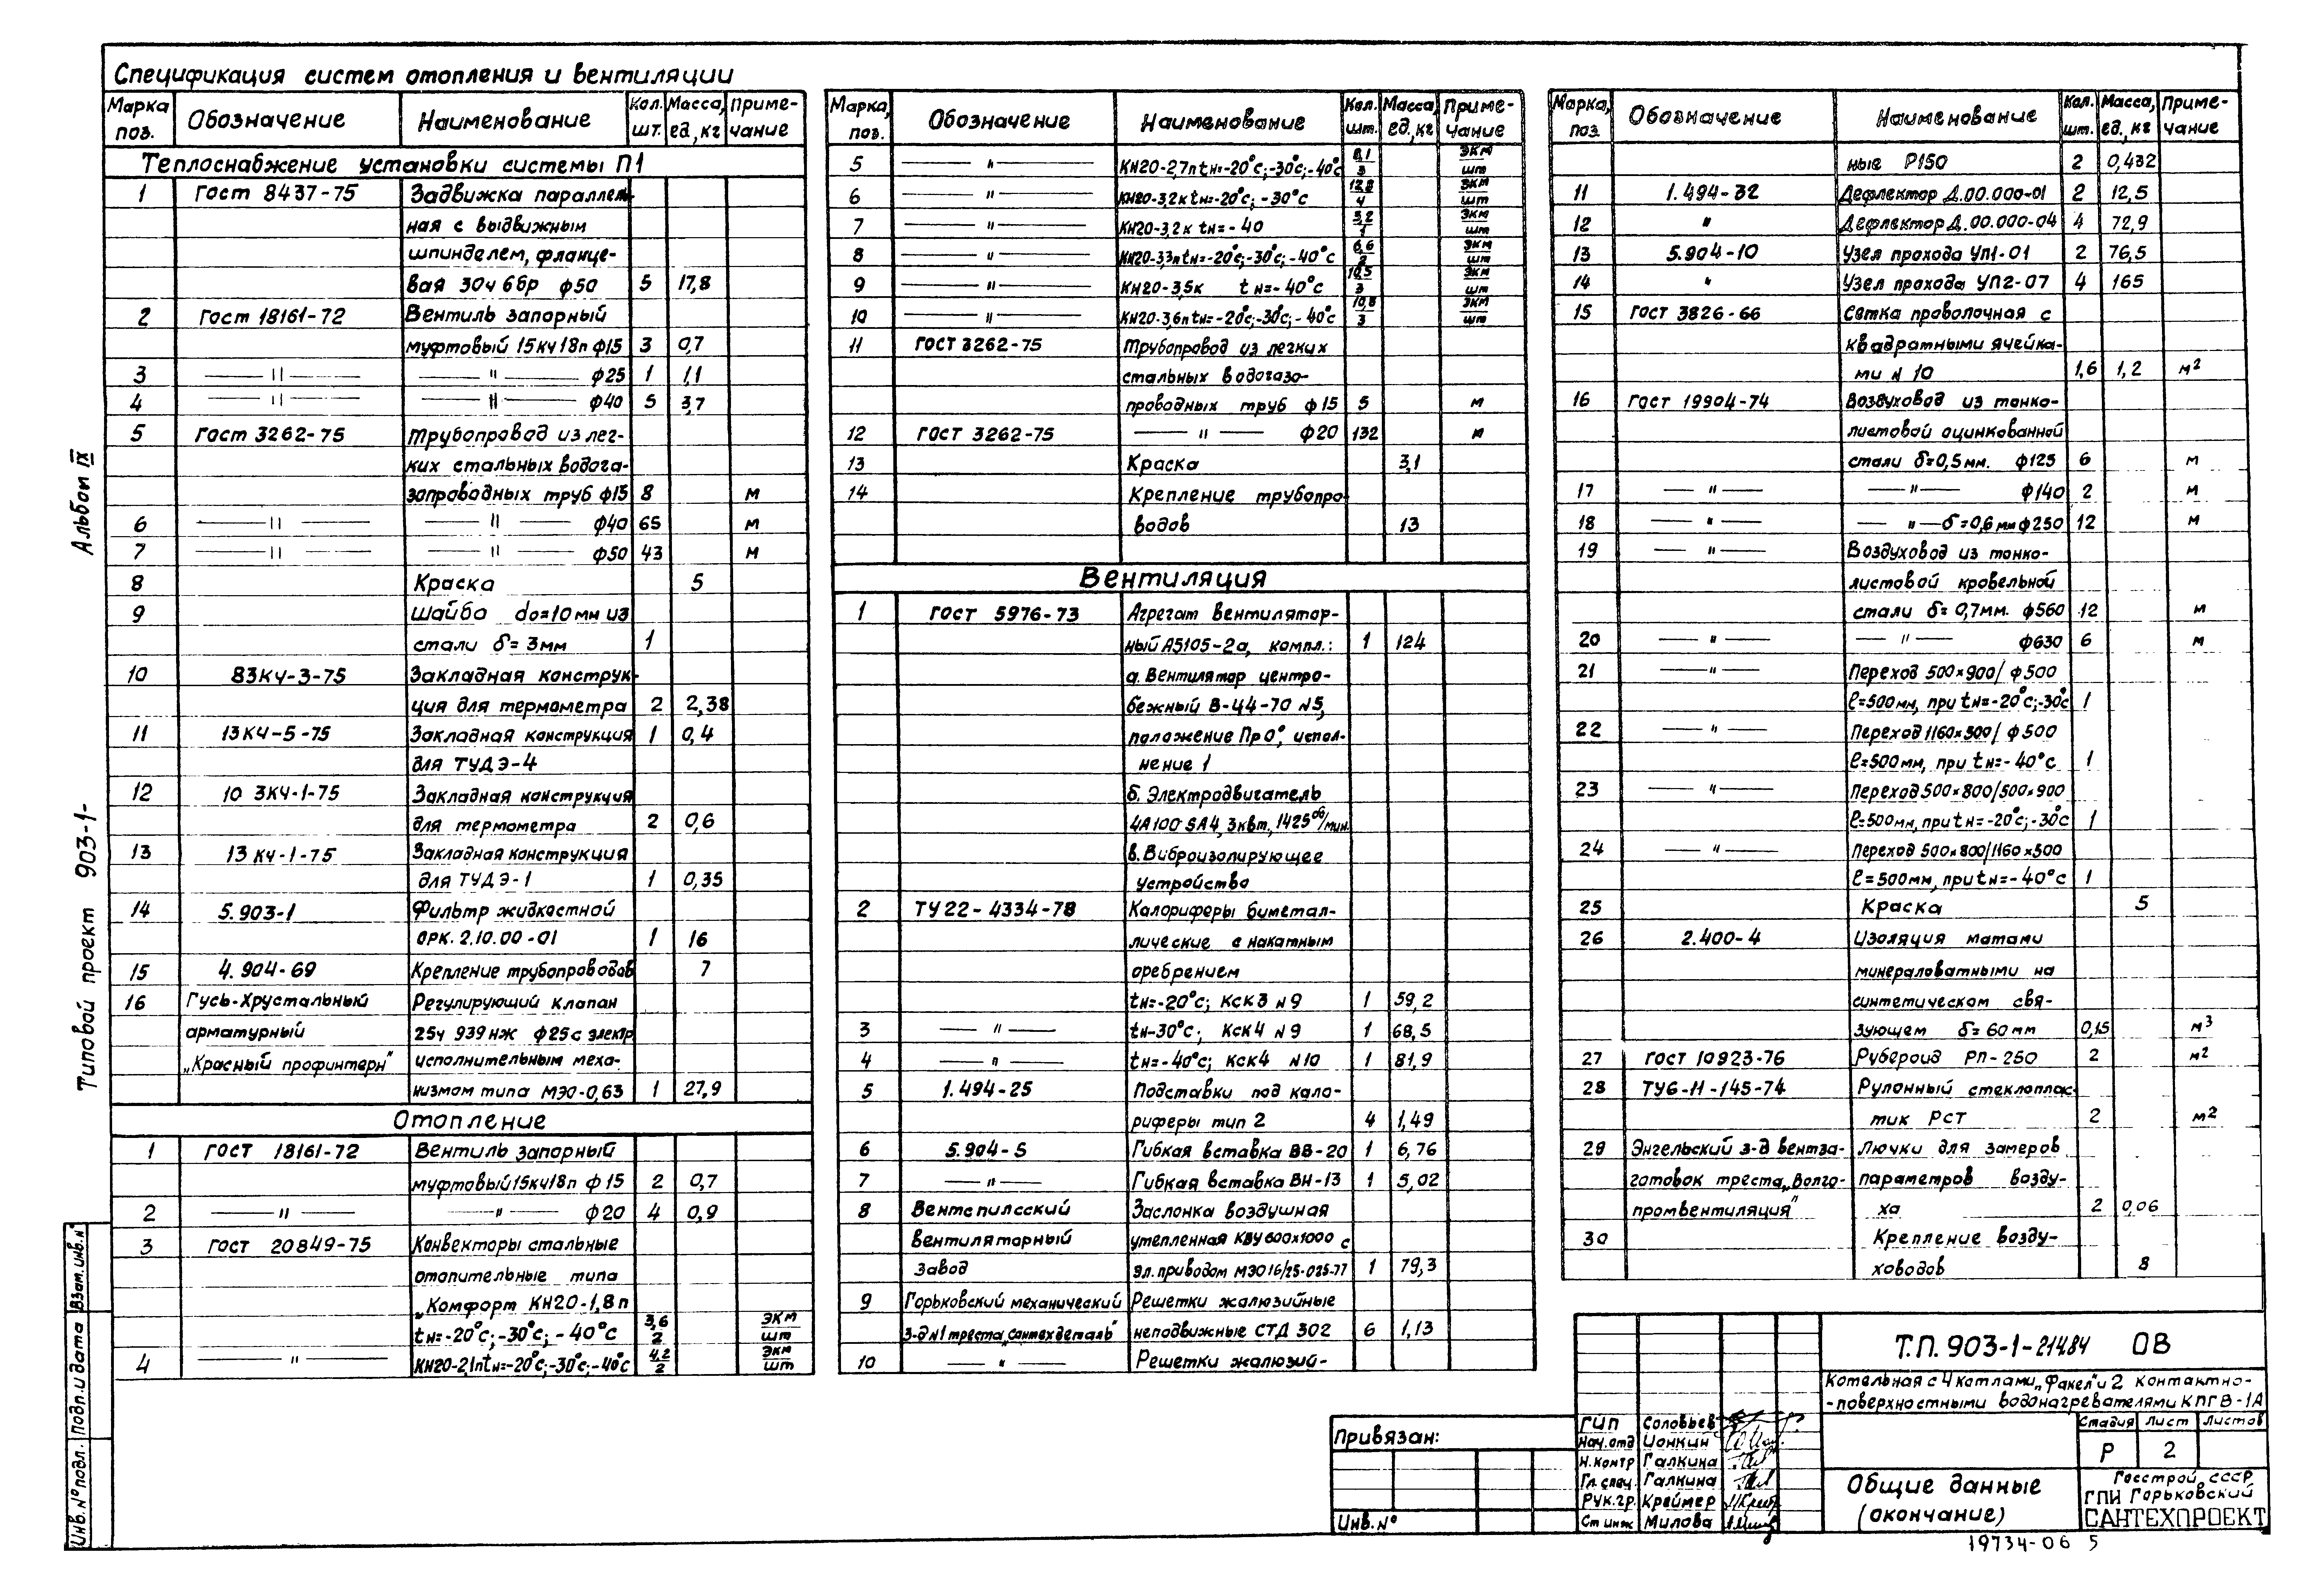 Спецификация систем отопления и вентиляции
Марка поз. Обозначение Наименование Кол. шт. Масса, ед., кг Приме-чание
Теплоснабжение установки системы П1
1 Гост 8437-75 Задвижка параллель-
ная с выдвижным
шпинделем, фланце-
вая 30ч 6бр ф50 5 17,8
2 Гост 18161-72 Вентиль запорный
муфтовый 15кч18п ф15 3 0,7
3 —— " —— —— " —— ф25 1 1,1
4 —— " —— —— " —— ф40 5 3,7
5 Гост 3262-75 Трубопровод из лег-
ких стальных водога-
зопроводных труб ф15 8 м
6 —— " —— —— " —— ф40 65 м
7 —— " —— —— " —— ф50 43 м
8 Краска 5
9 Шайба do=10мм из
стали δ=3мм 1
10 83КЧ-3-75 Закладная конструк-
ция для термометра 2 2,38
11 13КЧ-5-75 Закладная конструкция 1 0,4
для ТУДЭ-4
12 10 ЗКЧ-1-75 Закладная конструкция
для термометра 2 0,6
13 13 КЧ-1-75 Закладная конструкция
для ТУДЭ-1 1 0,35
14 5.903-1 Фильтр жидкостной
ОРК.2.10.00-01 1 16
15 4.904-69 Крепление трубопроводов 7
16 Гусь-Хрустальный Регулирующий клапан
арматурный 25ч 939нж ф25 с электр
„Красный профинтерн" исполнительным меха-
низмом типа МЭО-0,63 1 27,9
Отопление
1 ГОСТ 18161-72 Вентиль запорный
муфтовый 15кч18п ф15 2 0,7
2 —— " —— —— " —— ф20 4 0,9
3 ГОСТ 20849-75 Конвекторы стальные
отопительные типа
„Комфорт КН20-1,8п
tн=-20°с; -30°с; -40°с 3,6/2 экм/шт
4 —— " —— КН20-2,1п tн=-20°с; -30°с; -40°с 4,2/2 экм/шт
Марка, поз. Обозначение Наименование Кол. шт. Масса, ед., кг Приме-чание
5 —— " —— КН20-2,7п tн=-20°с; -30°с; -40°с 8,1/3 экм/шт
6 —— " —— КН20-3,2к tн=-20°с; -30°с 12,8/4 экм/шт
7 —— " —— КН20-3,2к tн=-40 3,2/1 экм/шт
8 —— " —— КН20-3,3п tн=-20°с; -30°с; -40°с 6,6/2 экм/шт
9 —— " —— КН20-3,5к tн=-40°с 10,5/3 экм/шт
10 —— " —— КН20-3,6п tн=-20°с; -30°с; -40°с 10,8/3 экм/шт
11 ГОСТ 3262-75 Трубопровод из легких
стальных водогазо-
проводных труб ф15 5 м
12 ГОСТ 3262-75 —— " —— ф20 132 м
13 Краска 3,1
14 Крепление трубопро-
водов 13
Вентиляция
1 ГОСТ 5976-73 Агрегат вентилятор-
ный А5105-2а, компл.: 1 124
а. Вентилятор центро-
бежный В-Ц4-70 №5,
положение Пр0°, испол-
нение 1
б. Электродвигатель
4А100S4, 3квт, 1425об/мин.
в. Виброизолирующее
устройство
2 ТУ22-4334-78 Калориферы биметал-
лические с накатным
оребрением
tн=-20°с; КСк3 №9 1 59,2
3 —— " —— tн-30°с; КСк4 №9 1 68,5
4 —— " —— tн=-40°с; КСк4 №10 1 81,9
5 1.494-25 Подставки под кало-
риферы тип 2 4 1,49
6 5.904-5 Гибкая вставка ВВ-20 1 6,76
7 —— " —— Гибкая вставка ВН-13 1 5,02
8 Вентспилсский Заслонка воздушная
вентиляторный утепленная КВУ 600х1000 с
завод эл. приводом МЭО 16/25-025-77 1 79,3
9 Горьковский механический Решетки жалюзийные
з-д №1 треста „Сантехдеталь" неподвижные СТД 302 6 1,13
10 —— " —— Решетки жалюзий-
Марка, поз. Обозначение Наименование Кол. шт. Масса, ед., кг Приме-чание
ные Р150 2 0,432
11 1.494-32 Дефлектор Д.00.000-01 2 12,5
12 " Дефлектор Д.00.000-04 4 72,9
13 5.904-10 Узел прохода УП1-01 2 76,5
14 " Узел прохода УП2-07 4 165
15 ГОСТ 3826-66 Сетка проволочная с
квадратными ячейка-
ми № 10 1,6 1,2 м2
16 ГОСТ 19904-74 Воздуховод из тонко-
листовой оцинкованной
стали δ=0,5мм. ф125 6 м
17 —— " —— —— " —— ф140 2 м
18 —— " —— — " — δ=0,6мм ф250 12 м
19 —— " —— Воздуховод из тонко-
листовой кровельной
стали δ=0,7мм. ф560 12 м
20 —— " —— —— " —— ф630 6 м
21 —— " —— Переход 500×900/ф500
ℓ=500мм, при tн=-20°с; -30°с 1
22 —— " —— Переход 1160×500/ф500
ℓ=500мм, при tн=-40°с 1
23 —— " —— Переход 500×800/500×900
ℓ=500мм, при tн=-20°с; -30°с 1
24 —— " —— Переход 500×800/1160×500
ℓ=500мм, при tн=-40°с 1
25 Краска 5
26 2.400-4 Изоляция матами
минераловатными на
синтетическом свя-
зующем δ=60мм 0,15 м3
27 ГОСТ 10923-76 Рубероид РП-250 2 м2
28 ТУ6-11-145-74 Рулонный стеклоплас-
тик РСТ 2 м2
29 Энгельский з-д вентза- Лючки для замеров
готовок треста „Волго- параметров возду-
промвентиляция" ха 2 0,06
30 Крепление возду-
ховодов 8
Альбом IX
Типовой проект 903-1-
Взам. инв. №
Подп. и дата
Инв. № подл.
Привязан:
Инв. №
ГИП Соловьев
Нач. отд Ионкин
Н. контр Галкина
Гл. спец. Галкина
Рук. гр. Креймер
Ст инж Милова
Т.П. 903-1-214.84 ОВ
Котельная с 4 котлами „Факел" и 2 контактно-
-поверхностными водонагревателями КПГВ-1А
Стадия Лист Листов
Р 2
Общие данные
(окончание)
Госстрой СССР
ГПИ Горьковский
САНТЕХПРОЕКТ
19734-06 5